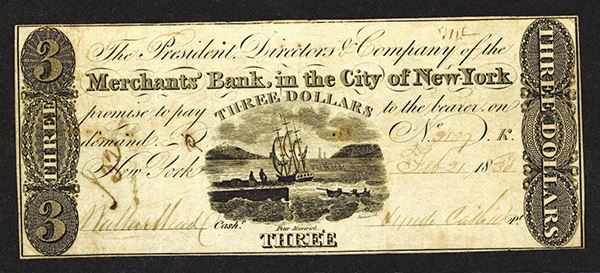 3
THREE
3
The President, Directors & Company of the
Merchants' Bank, in the City of New-York
promise to pay THREE DOLLARS to the bearer, on
demand. No. K.
New York Feb 21 18
Cash.r Lynde Catlin Pt
Peter Maverick
THREE
THREE DOLLARS